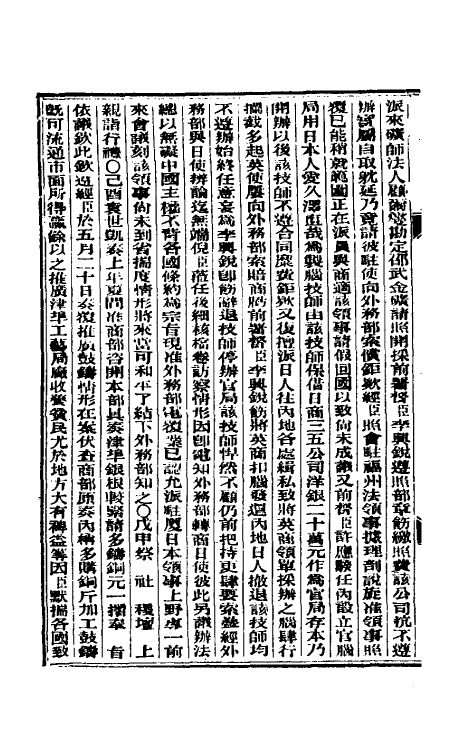 派來礦師法人顧倫懲勘定邵武金礦請照開採前署督臣李興銳遵照部章飭繳照費該公司抗不遵
辦實屬自取躭延乃竟請彼駐使向外務部索償鉅欵經臣照會駐福州法領事據理剖說旋准領事照
覆已能稍就範圍正在派員與商適該領事請假回國以致尚未成議又前督臣許應騤任內設立官腦
局用日本人愛久澤直哉為製腦技師由該技師保借日商三五公司洋銀二十萬元作為官局存本乃
開辦以後該技師不遵合同糜費鉅欵又復擅派日人往內地各處緝私致將英商領單採辦之腦肆行
攔截多起英使屢向外務部索賠商賄前署督臣李興銳飭將英商扣腦發還內地日人撤退該技師均
不遵辦始終任意妄為李興銳即飭辭退技師停辦官局該技師悍然不顧仍前把持更肆要索並經外
務部與日使辨論迄無端倪臣蒞任後細核檔卷訪察情形因即電知外務部轉商日使彼此另議辦法
總以無礙中國主權不背各國條約為宗旨現准外務部電覆業已認允派駐廈日本領事上野專一前
來會議刻該領事尚未到省揣度情形將來當可和平了結下外務部知之〇戊申祭　社　稷壇　上
親詣行禮〇己酉袁世凱奏上年夏間准商部咨開本部具奏津準銀根較緊請多鑄銅元一摺奉　旨
依議欽此欽遵經臣於五月二十日奏覆推廣鼓鑄情形在案伏查商部原奏內稱多購銅斤加工鼓鑄
既可流通市面所得贏餘以之推廣津準工藝局廠收養貧民尤於地方大有裨益等因臣默揣各國致